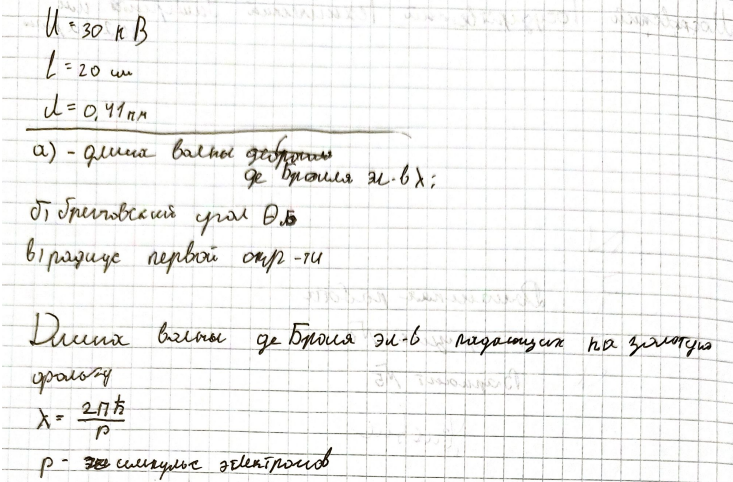 U = 30 кВ
l = 20 см
d = 0,41 нм
а) - длина волны
де Бройля эл-в λ;
б) бреговский угол θБ
в) радиус первой окр-ти
Длина волны де Броля эл-в падающих на золотую
фольгу
λ = 2πħ / p
p - импульс электронов